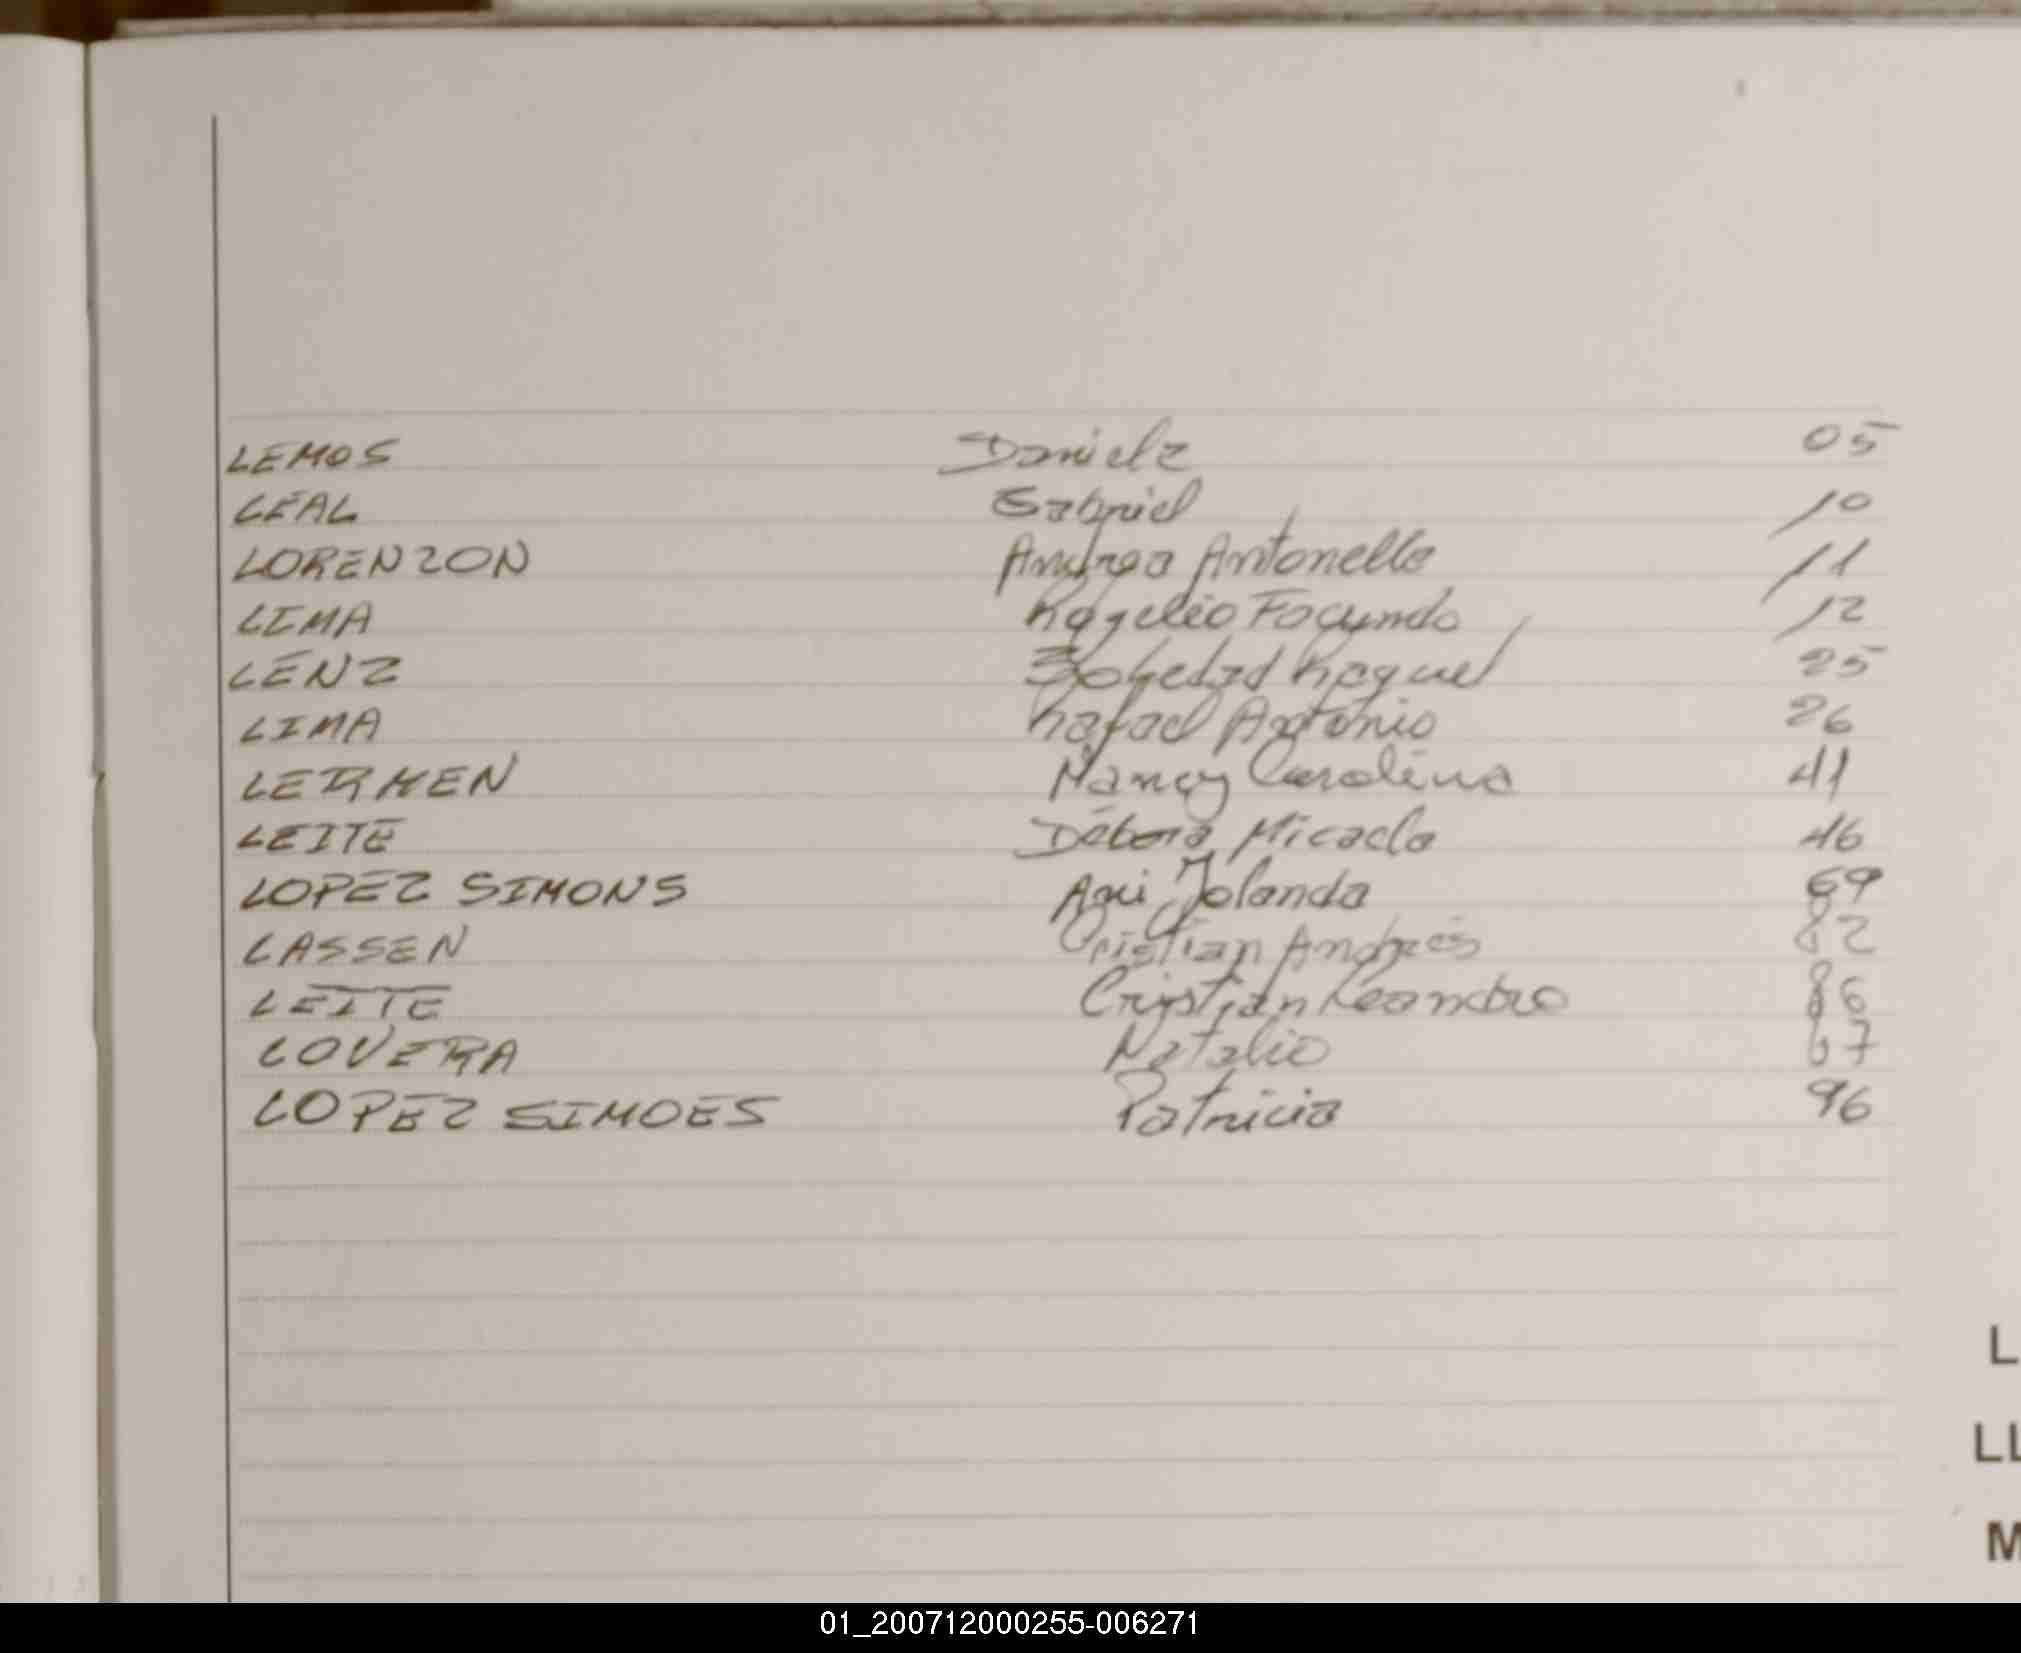 LEMOS Daniela 05
LEAL Gabriel 10
LORENZON Andrea Antonella 11
LIMA Rogelio Facundo 12
LENZ Soledad Raquel 25
LIMA Rafael Antonio 26
LERMEN Nancy Carolina 41
LEITE Débora Micaela 46
LOPEZ SIMONS Yolanda 69
LASSEN Cristian Andrés 82
LEITE Cristian Leandro 86
LOVERA Natalio
LOPEZ SIMOES Patricia 96
L
LL
M
01_200712000255-006271